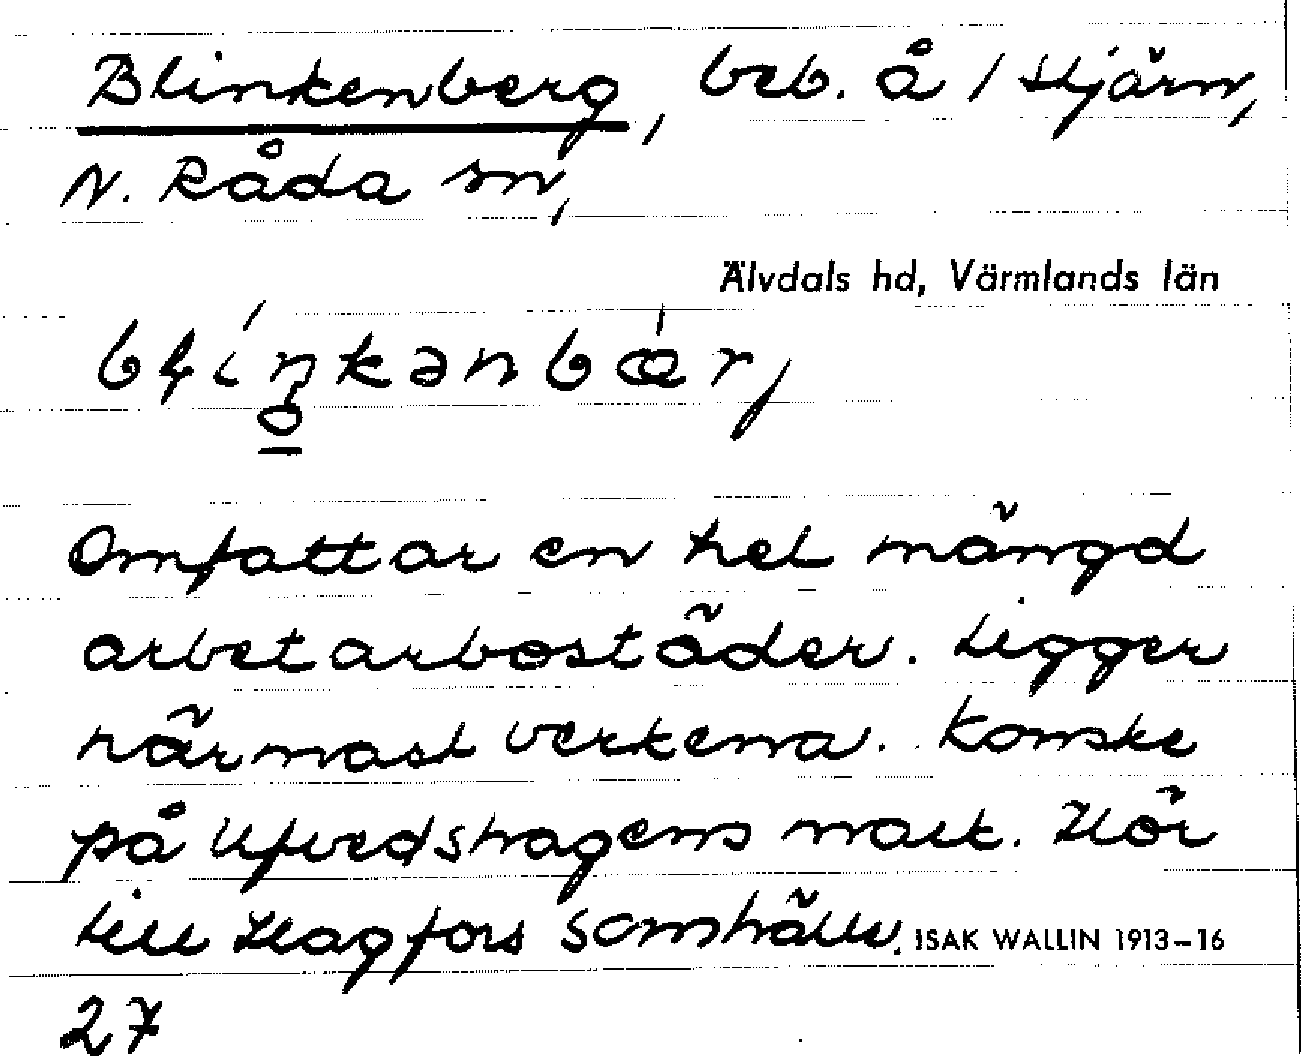 Blinkenberg, beb. å 1 Hjärn,
N. Råda sn,
Älvdals hd, Värmlands län
Omfattar en hel mängd
arbetarbostäder. Ligger
närmast verkena. Kanske
på Ufvedshagens mark. Hör
till Hagfors samhälle.
ISAK WALLIN 1913-16
27